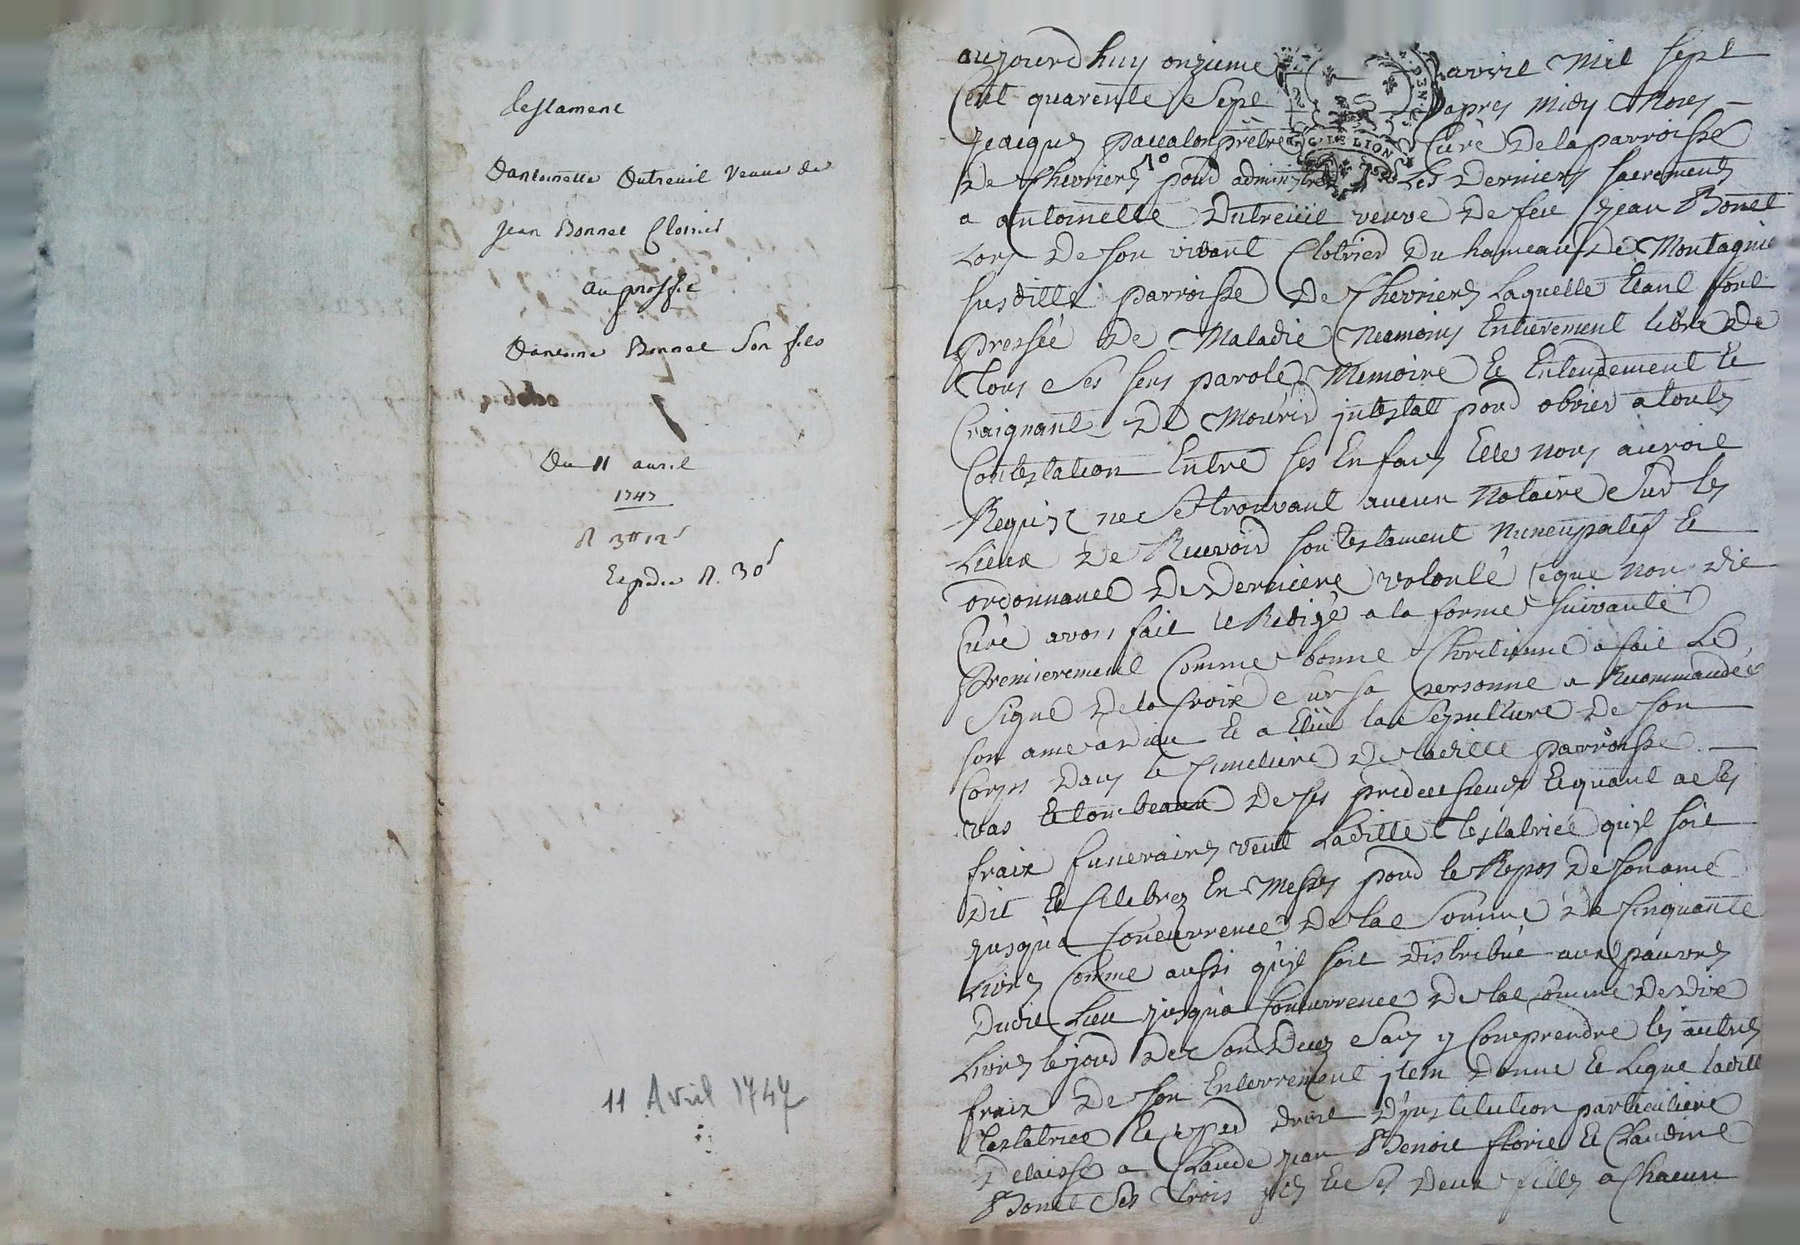 testament
Dantoinette Dutreuil veuve de
Jean Bonnet Clotrier
au proffit
Dantoine Bonnet son fils
Du 11 avril
1747
R 3tt 12s
Expédié R. 30s
11 Avril 1747
aujourd huy onzieme avril Mil sept
Cent quarente sept apres midy Nous
jeacques pacalon prêtre Curé de la parroisse
de Chevrieres pour administrer les derniers sacrements
a antoinette Dutreüil veuve de feu jean Bonet
Lors de son vivant Clotrier du hameau de Montagnie
susditte parroisse de Chevrieres Laquelle Etant fort
pressée de Maladie Neamoins Entierement libre de
tous ses sens parole Memoire Et Entendement Et
Craignant de Mourir jntestat pour obvier a toutes
Contestation Entre ses Enfans Elle nous auroit
Requis ne se trouvant aucun Notaire sur les
Lieux de Recevoir son testament Nuncupatif Et
ordonnance de derniere volonté ce que nou dit
Curé avons fait Et Redigé a la forme suivante
Premierement Comme bonne Chretienne a fait Le
signe de la Croix sur sa personne a Recommandée
son ame a dieu Et a Elüe la sepulture de son
Corps dans le Cimetiere de laditte parroisse
vas Et tombeaux de ses predecesseurs Et quant a ses
fraix funeraires veut Laditte testatrice qu'jl soit
dit Et Celebrez En Messes pour le Repos de son ame
jusqu'a Concurrence de la somme de Cinquante
Livres Comme aussi qu'jl soit distribué aux pauvres
dudit Lieu jusqu'a Concurrence de la somme de dix
Livres le jour de son deces sans y Comprendre les autres
fraix de son Enterrement jtem donne Et Legue laditte
testatrice Et par droit d'jnstitution particuliere
delaisse a Claude jean Benoit florie Et Claudine
Bonet ses trois fils Et ses deux filles a Chacun